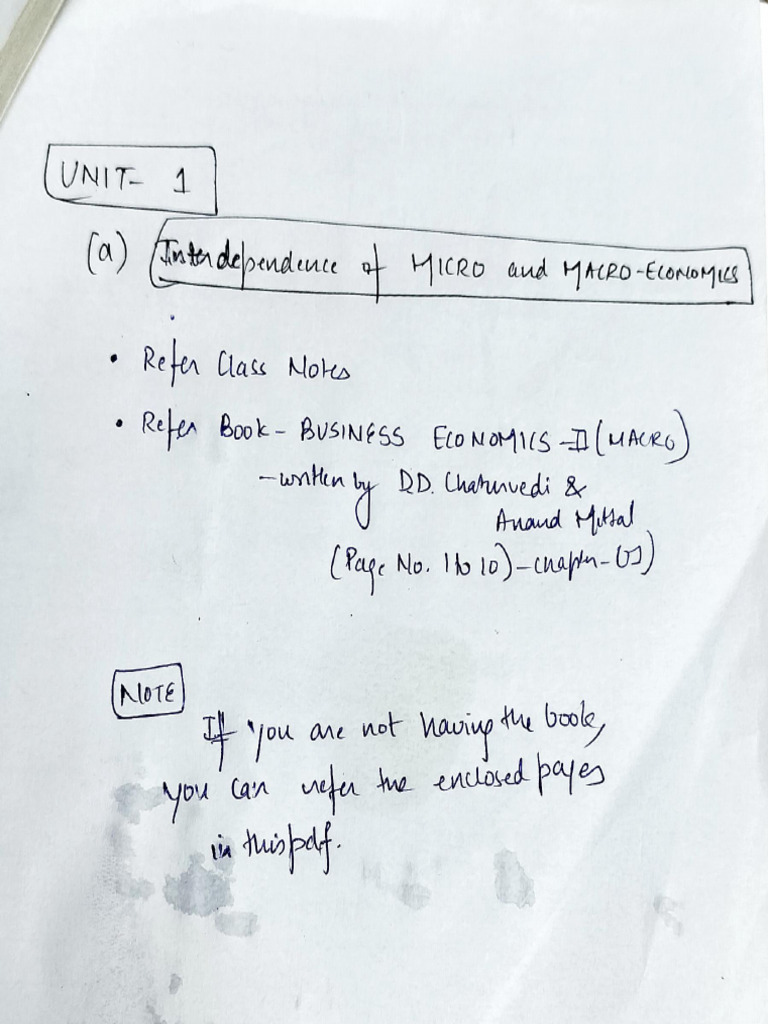 UNIT- 1
(a) Interdependence of MICRO and MACRO-ECONOMICS
• Refer Class Notes
• Refer Book - BUSINESS ECONOMICS -II (MACRO)
- written by D.D. Chaturvedi &
Anand Mittal
(Page No. 1 to 10) - chapter - 01)
NOTE
If you are not having the book,
you can refer the enclosed pages
in this pdf.